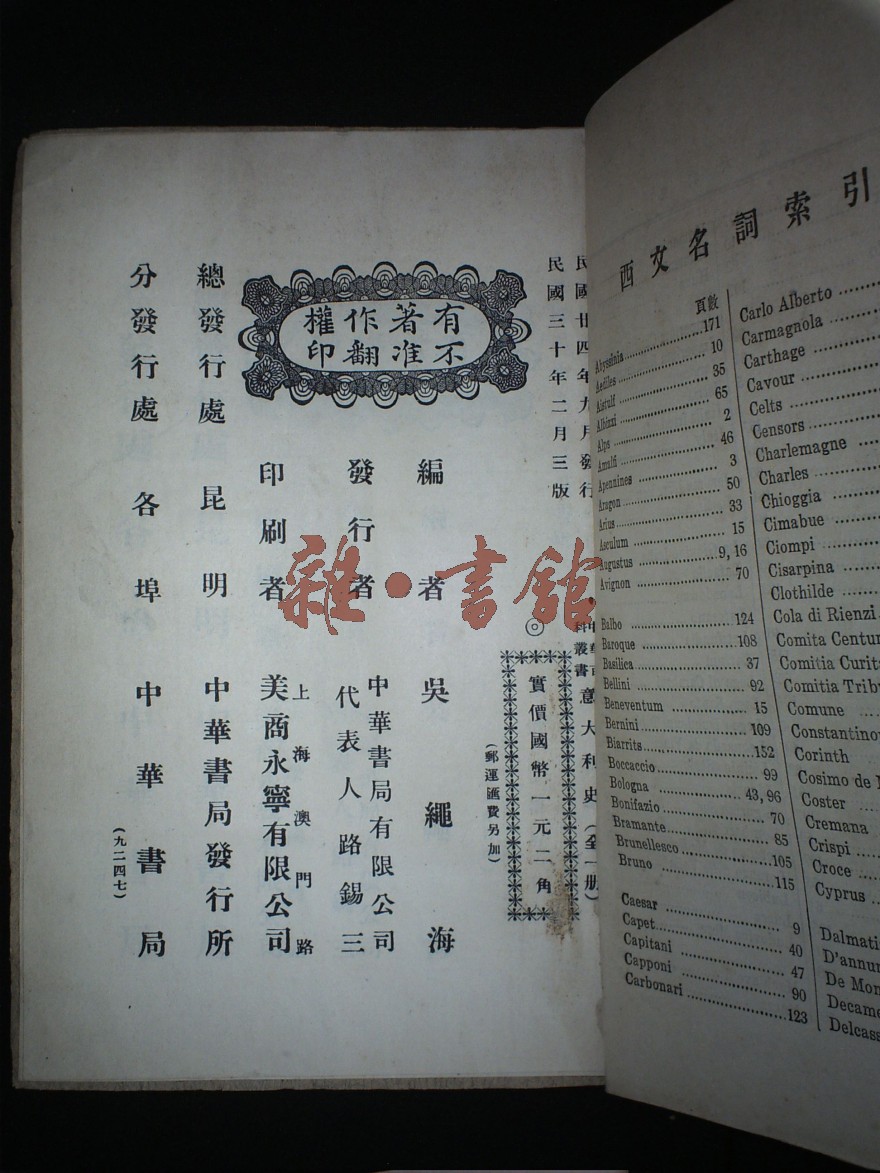 民國廿四年九月發行
民國三十年二月三版
意大利史(全一册)
◎
實價國幣一元二角
(郵運匯費另加)
有著作權
不准翻印
編者 吳繩海
發行者 中華書局有限公司
代表人路錫三
印刷者 上海澳門路
美商永寧有限公司
總發行處 昆明 中華書局發行所
分發行處 各埠 中華書局
(九二四七)
雜·書館
西文名詞索引
頁數
Abyssinia 171
Aediles 10
Aistulf 35
Albizzi 65
Alps 2
Amalfi 46
Apennines 3
Aragon 50
Arius 33
Asculum 15
Augustus 9, 16
Avignon 70
Balbo 124
Baroque 108
Basilica 37
Bellini 92
Beneventum 15
Bernini 109
Biarrits 152
Boccaccio 99
Bologna 43, 96
Bonifazio 70
Bramante 85
Brunellesco 105
Bruno 115
Caesar 9
Capet 40
Capitani 47
Capponi 90
Carbonari 123
Carlo Alberto
Carmagnola
Carthage
Cavour
Celts
Censors
Charlemagne
Charles
Chioggia
Cimabue
Ciompi
Cisarpina
Clothilde
Cola di Rienzi
Comita Centur
Comitia Curita
Comitia Tribu
Comune
Constantino
Corinth
Cosimo de M
Coster
Cremana
Crispi
Croce
Cyprus
Dalmati
D'annun
De Mon
Decame
Delcass